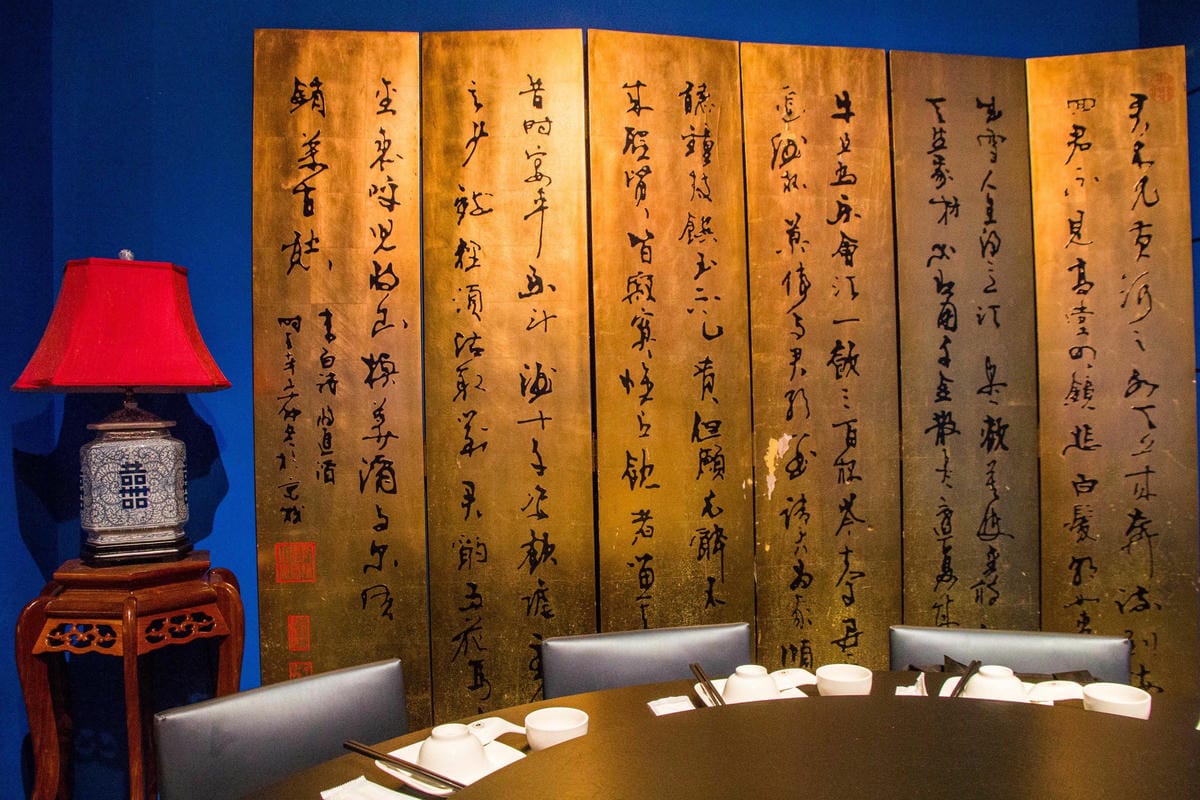 君不見黄河之水天上来奔流到海
回君不見高堂明鏡悲白髮朝如青
成雪人生得意須盡歡莫使金樽
天生我材必有用千金散盡還復來
牛且為樂會須一飲三百杯岑夫子丹
進酒杯莫停與君歌一曲請君為我傾
聽鐘鼓饌玉不足貴但願長醉不
來聖賢皆寂寞惟有飲者留其
昔時宴平樂斗酒十千恣歡謔主
言少錢徑須沽取對君酌五花馬
金裘呼兒將出換美酒與爾同
銷萬古愁
李白詩將進酒
囍